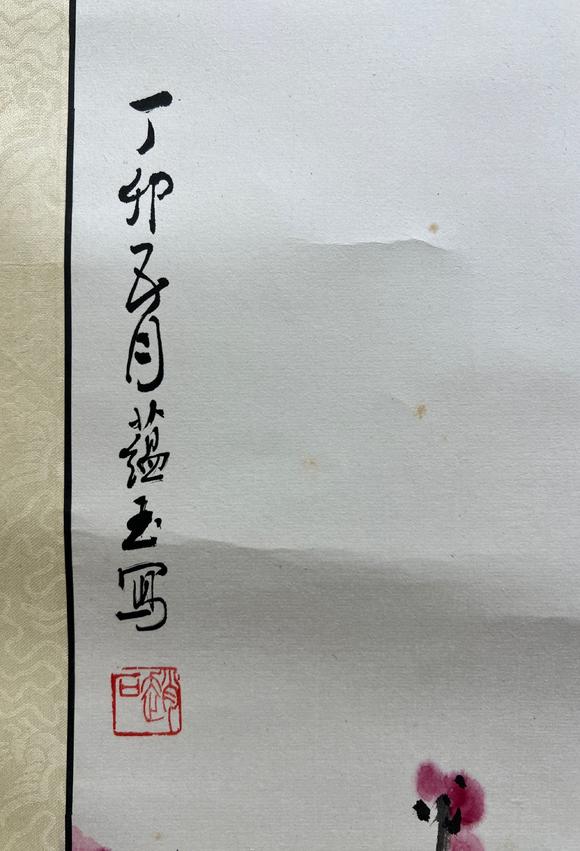 丁卯五月蕴玉寫